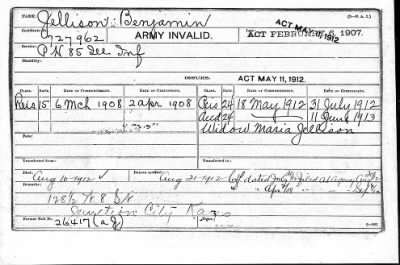 NAME: Jellison: Benjamin (3—P.A.S.)
Certificate No. 727962 ARMY INVALID. ACT FEBRUARY 6, 1907. ACT MAY 11, 1912
Service: P N 85 Ill Inf
Disability:
ISSUES. ACT MAY 11, 1912.
CLASS. RATE. DATE OF COMMENCEMENT. DATE OF CERTIFICATE. CLASS. RATE. DATE OF COMMENCEMENT. DATE OF CERTIFICATE.
Reis 15 6 Mch 1908 2 apr 1908 Reis 24 18 May 1912 31 July 1912
24 11 June 1913
Widow Maria Jellison
Transferred from: Transferred to:
Died: Aug 10-1912 Aug 21-1912 Ctf dated July
Remarks:
128½ W 8 St
Junction City Kans
Former Roll No. 26417